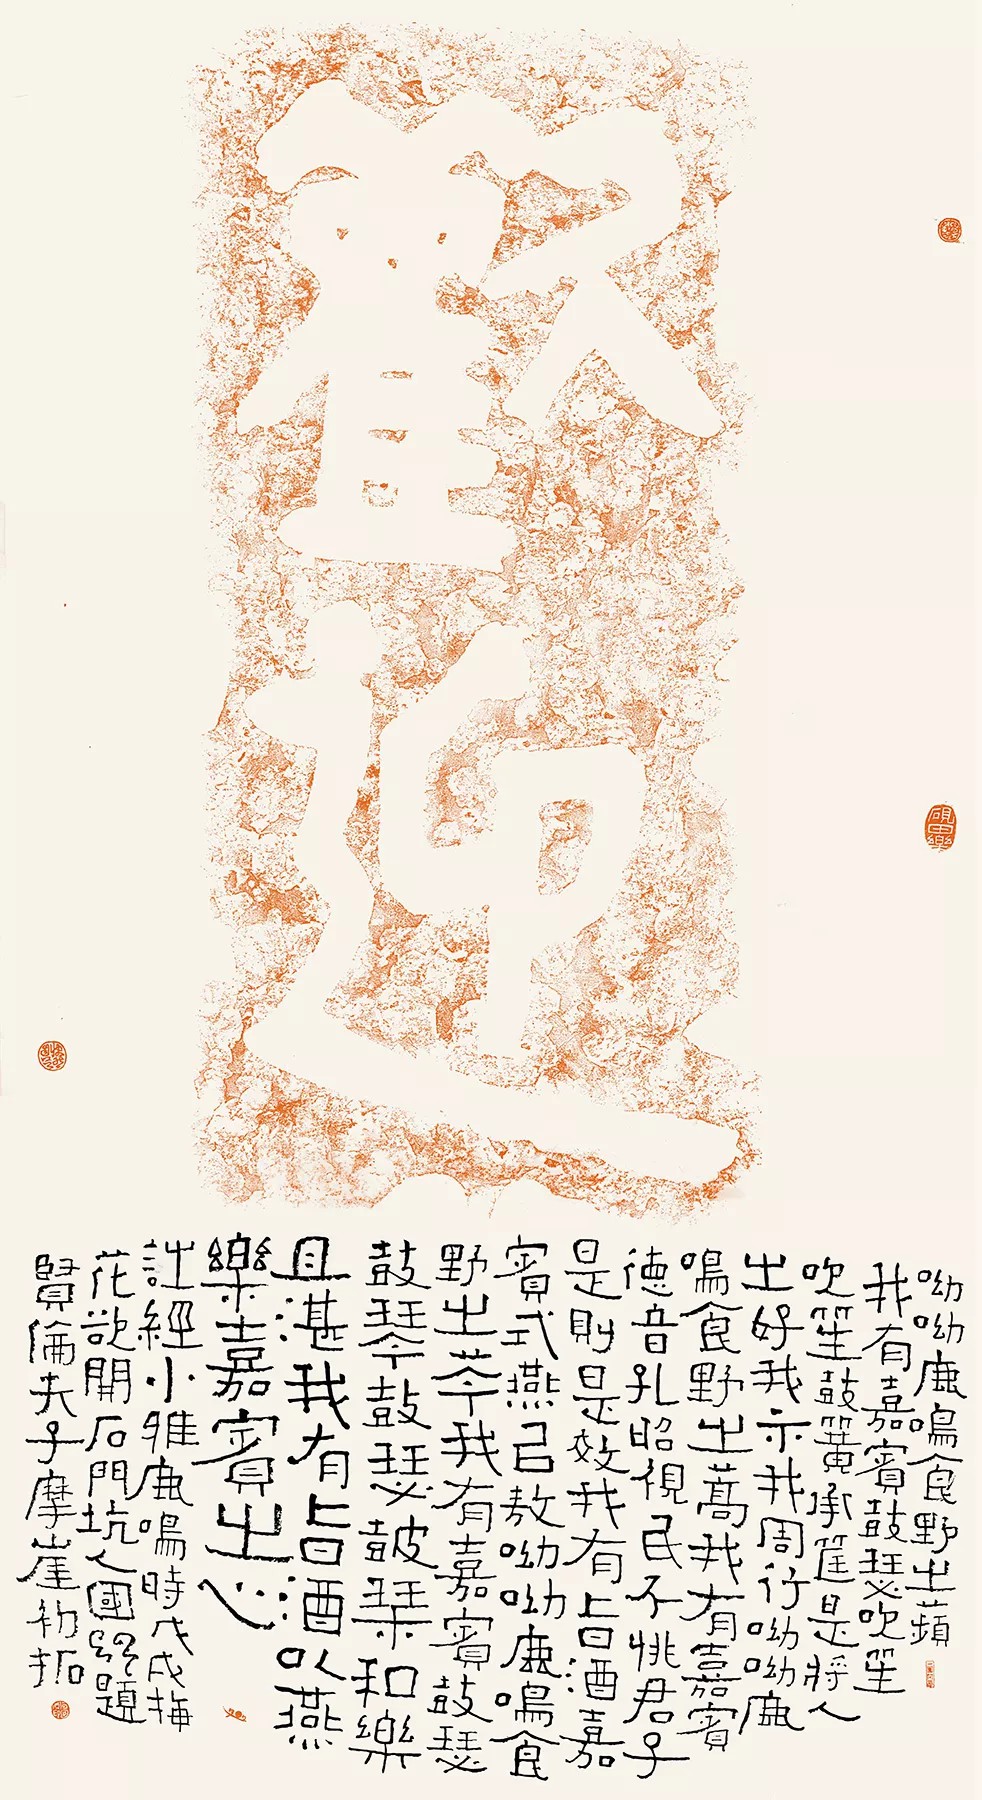 歡迎
呦呦鹿鳴食野之蘋
我有嘉賓鼓瑟吹笙
吹笙鼓簧承筐是將人
之好我示我周行呦呦鹿
鳴食野之蒿我有嘉賓
德音孔昭視民不恌君子
是則是效我有旨酒嘉
賓式燕已敖呦呦鹿鳴食
野之芩我有嘉賓鼓瑟
鼓琴鼓瑟鼓琴和樂
且湛我有旨酒以燕
樂嘉賓之心
詩經小雅鹿鳴時戊戌梅
花欲開石門坑人國題
賢倫夫子摩崖初拓